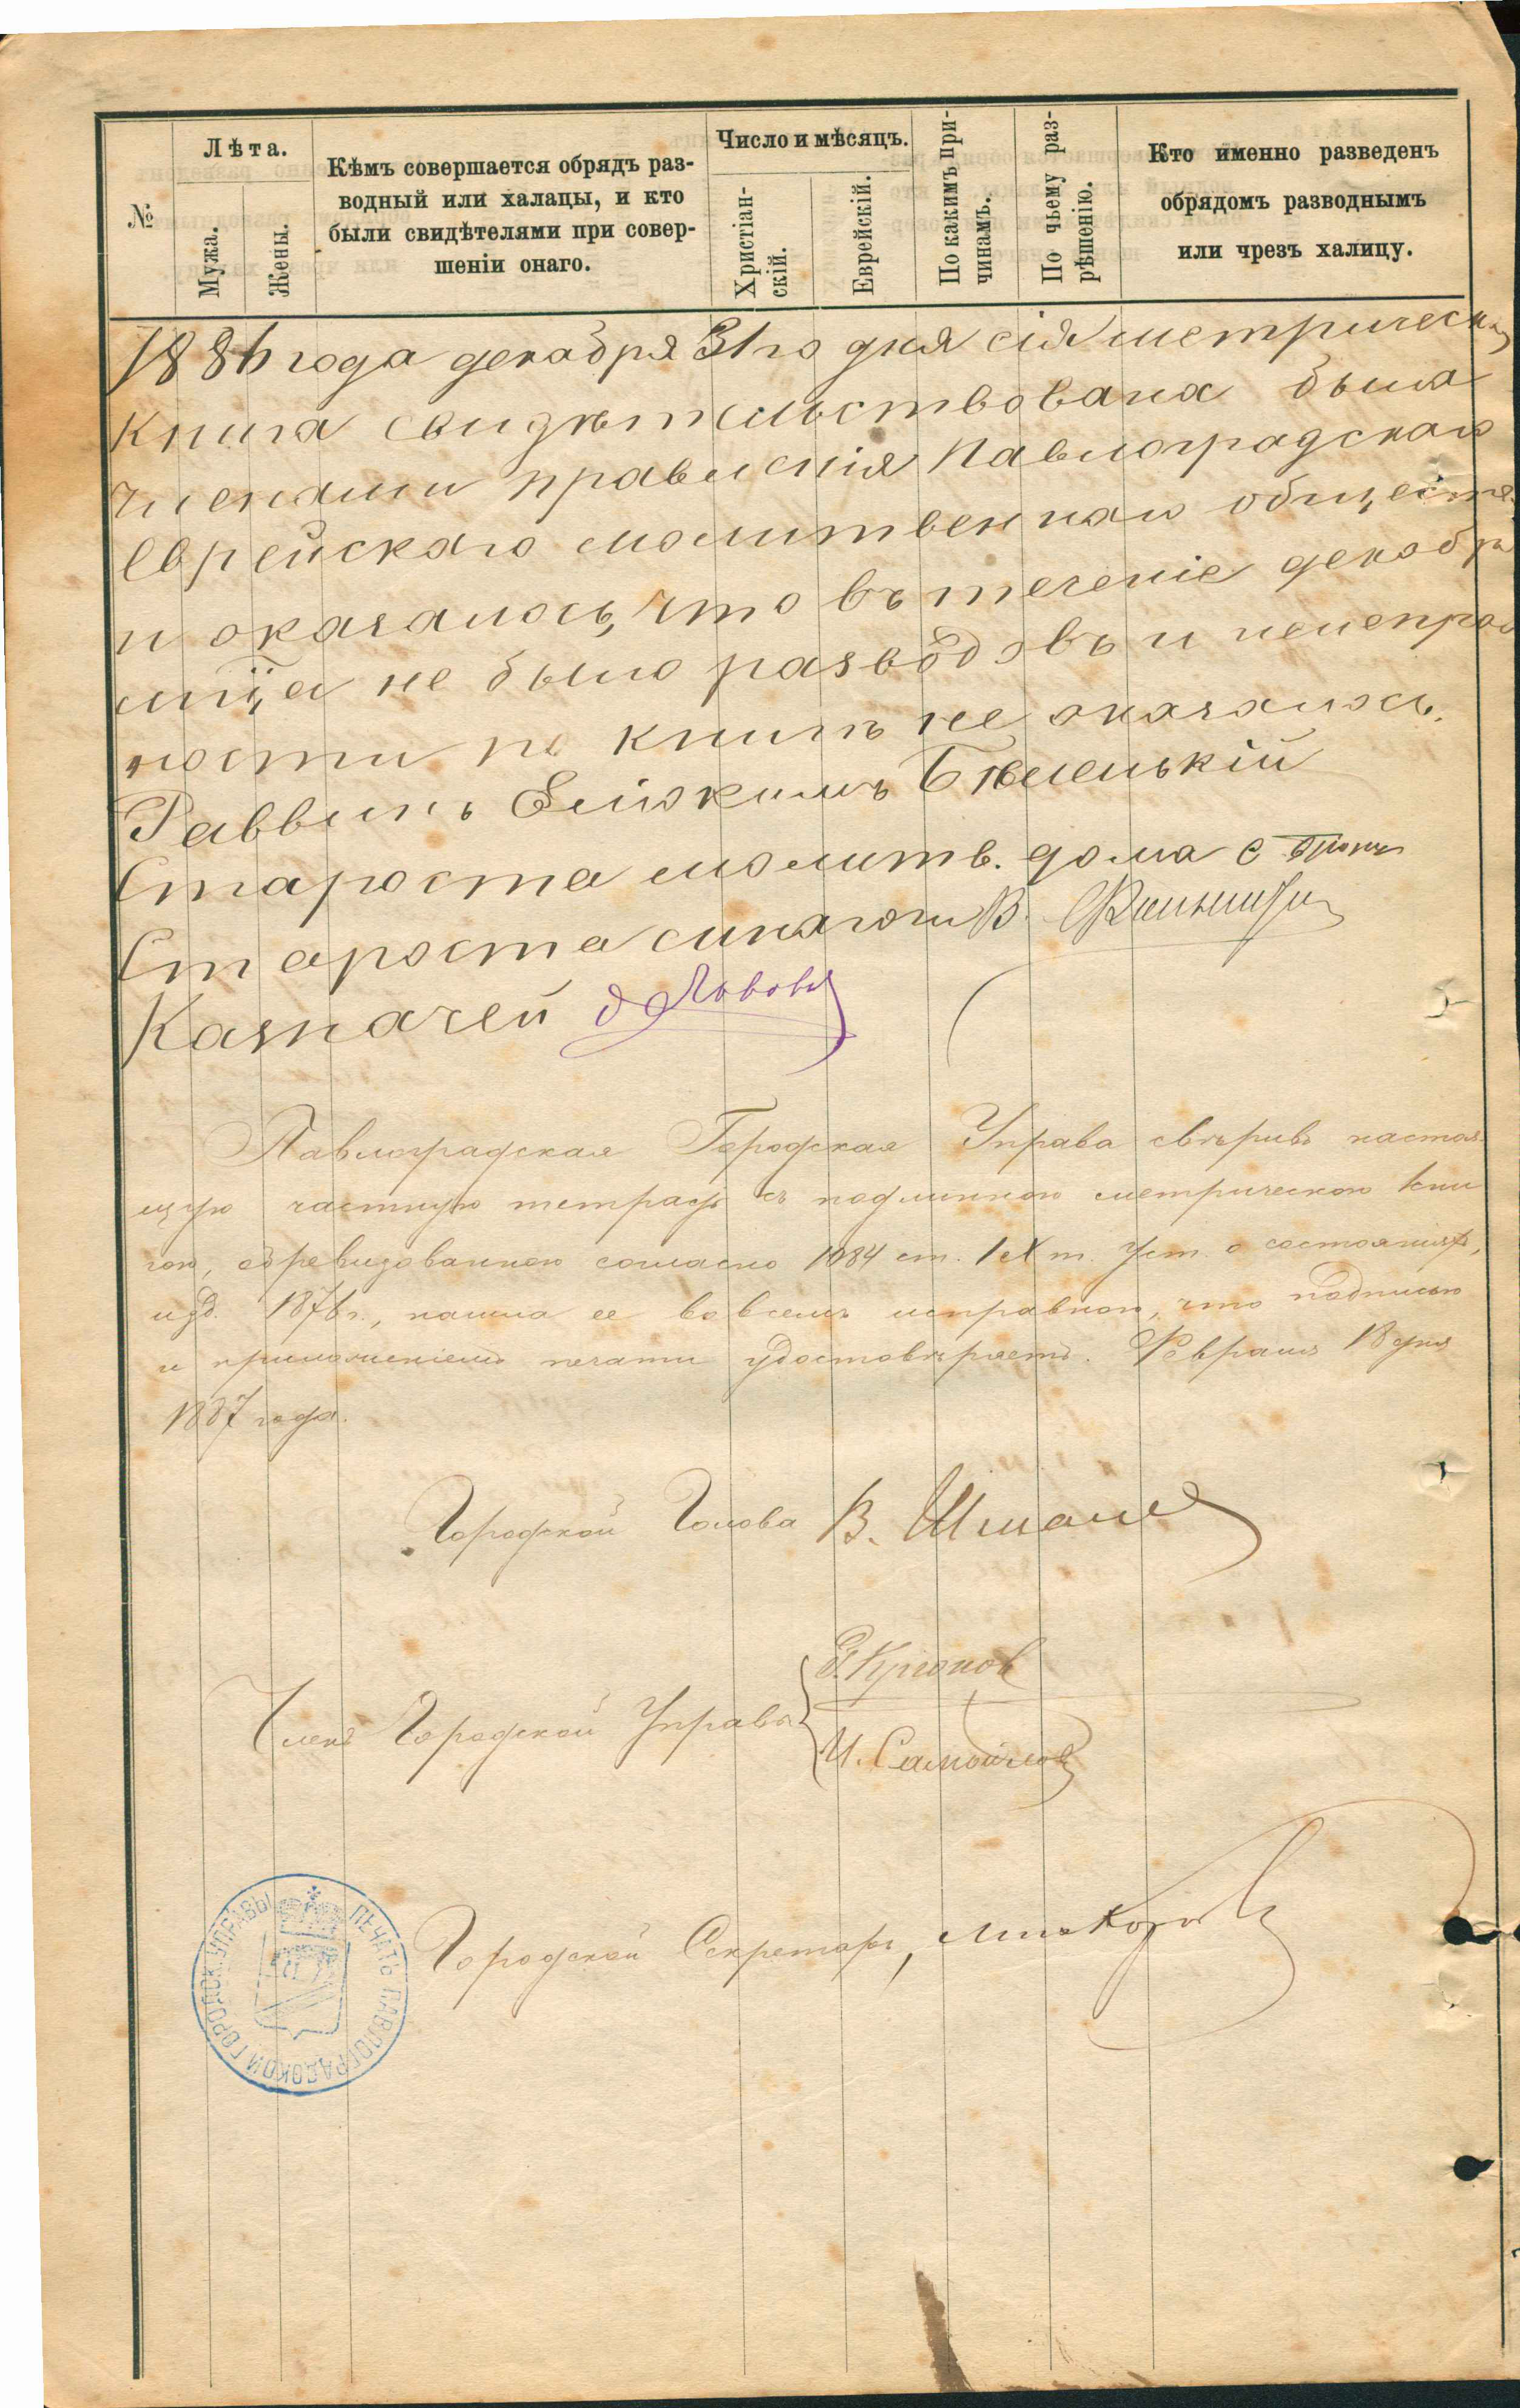 №
Лѣта.
Мужа.
Жены.
Кѣмъ совершается обрядъ раз-
водный или халацы, и кто
были свидѣтелями при совер-
шеніи онаго.
Число и мѣсяцъ.
Христіан-
скій.
Еврейскій.
По какимъ при-
чинамъ.
По чьему раз-
рѣшенію.
Кто именно разведенъ
обрядомъ разводнымъ
или чрезъ халицу.
1886 года декабря 31го дня сія метрическая
книга свидѣтельствована была
членами правленія Павлоградскаго
Еврейскаго молитвеннаго общества
и оказалось, что въ теченіе декабря
мца не было разводовъ и неисправ
ности по книгѣ не оказалось.
Раввинъ Еліокимъ Бѣленькій
Староста молитв. дома С
Староста синагоги В.
Казначей Львовъ
Павлоградская Городская Управа свѣривъ настоя-
щую частную тетрадь съ подлинною метрическою кни
гою, обревизованною согласно 1084 ст. IX т. Уст. о состояніяхъ,
изд. 1876 г., нашла ее во всемъ исправною, что подписью
и приложеніемъ печати удостовѣряетъ. Февраля 18 дня
1887 года.
Городской Голова В.
Членъ Городской Управы
И. Самойлов
Городской Секретарь,
ПЕЧАТЬ ПАВЛОГРАДСКОЙ ГОРОДСК. УПРАВЫ